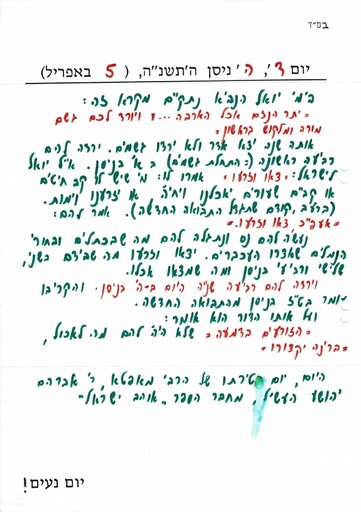 בס״ד
יום ד׳, ה׳ ניסן ה׳תשנ״ה, ( 5 באפריל)
בימי יואל הנביא נתקיים מקרא זה:
״יתר הגזם אכל הארבה...״ ויורד לכם גשם
מורה ומלקוש בראשון״
אותה שנה יצא אדר ולא ירדו גשמים. ירדה להם
רביעה ראשונה (=התחלת גשמים) ב א׳ בניסן. א״ל יואל
לישראל: ״צאו וזרעו״ אמרו לו: מי שיש לו קב חיטים
או קביים שעורים יאכלנו ויחיה או יזרענו וימות.
(ברעב, קודם שתגדל התבואה החדשה). אמר להם:
״אעפ״כ צאו וזרעו״.
נעשה להם נס ונתגלה להם מה שבכתלים ובחורי
הנמלים שאצרו העכברים. יצאו וזרעו מה שבידם בשני,
שלישי ורביעי בניסן ומה שמצאו אכלו.
וירדה להם רביעה שניה היום ב-ה׳ בניסן. והקריבו
עומר בט״ז בניסן מהתבואה החדשה.
ועל אותו הדור הוא אומר:
״הזורעים בדמעה״ שלא היה להם מה לאכול,
״ברינה יקצורו״
היום, יום פטירתו של הרבי מאפטא, ר׳ אברהם
יהושע העשיל, מחבר הספר ״אוהב ישראל״
יום נעים!